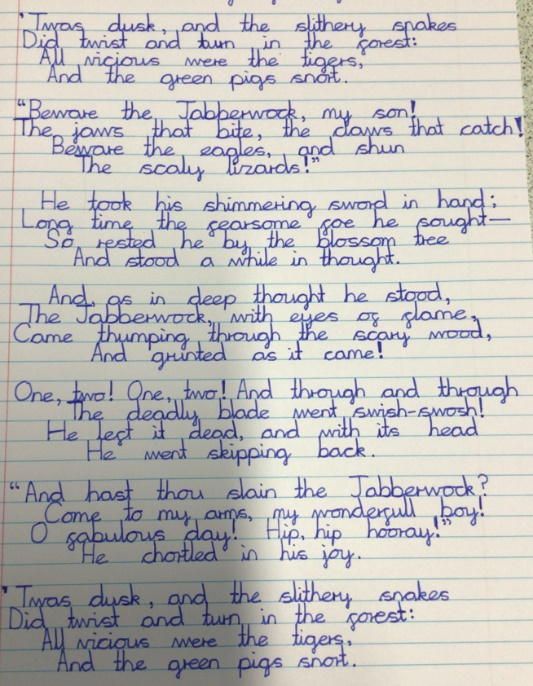 'Twas dusk, and the slithery snakes
Did twist and turn in the forest:
All vicious were the tigers,
And the green pigs snort.
"Beware the Jabberwock, my son!
The jaws that bite, the claws that catch!
Beware the eagles, and shun
The scaly lizards!"
He took his shimmering sword in hand;
Long time the fearsome foe he sought—
So rested he by the blossom tree
And stood a while in thought.
And, as in deep thought he stood,
The Jabberwock, with eyes of flame,
Came thumping through the scary wood,
And grunted as it came!
One, two! One, two! And through and through
The deadly blade went swish-swosh!
He left it dead, and with its head
He went skipping back.
"And hast thou slain the Jabberwock?
Come to my arms, my wonderfull boy!
O fabulous day! Hip, hip hooray!"
He chortled in his joy.
'Twas dusk, and the slithery snakes
Did twist and turn in the forest:
All vicious were the tigers,
And the green pigs snort.